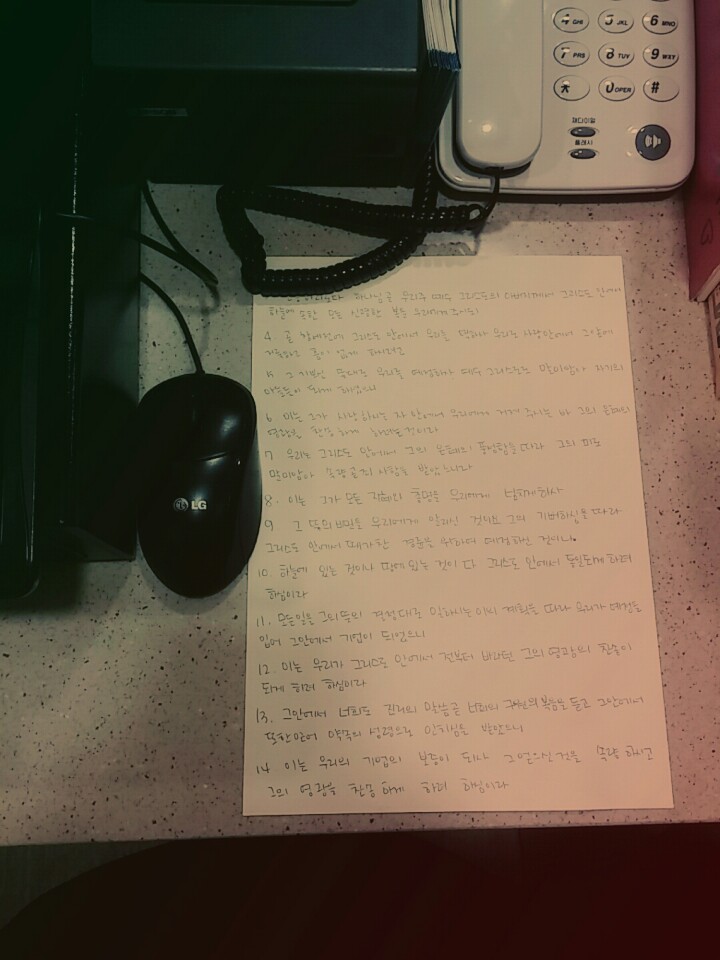 4 GHI 5 JKL 6 MNO
7 PRS 8 TUV 9 WXY
* 0 OPER #
재다이얼
플래시
LG
하나님 곧 우리 주 예수 그리스도의 아버지께서 그리스도 안에서
하늘에 속한 모든 신령한 복을 우리에게 주시되
4. 곧 창세전에 그리스도 안에서 우리를 택하사 우리로 사랑안에서 그 앞에
거룩하고 흠이 없게 하시려고
5 그 기쁘신 뜻대로 우리를 예정하사 예수 그리스도로 말미암아 자기의
아들들이 되게 하셨으니
6 이는 그가 사랑하시는 자 안에서 우리에게 거저 주시는 바 그의 은혜의
영광을 찬송하게 하려는 것이라
7 우리는 그리스도 안에서 그의 은혜의 풍성함을 따라 그의 피로
말미암아 속량 곧 죄 사함을 받았느니라
8. 이는 그가 모든 지혜와 총명을 우리에게 넘치게하사
9 그 뜻의 비밀을 우리에게 알리신 것이요 그의 기뻐하심을 따라
그리스도 안에서 때가 찬 경륜을 위하여 예정하신 것이니
10. 하늘에 있는 것이나 땅에 있는 것이 다 그리스도 안에서 통일되게 하려
하심이라
11. 모든 일을 그의 뜻의 결정대로 일하시는 이의 계획을 따라 우리가 예정을
입어 그 안에서 기업이 되었으니
12. 이는 우리가 그리스도 안에서 전부터 바라던 그의 영광의 찬송이
되게 하려 하심이라
13. 그안에서 너희도 진리의 말씀 곧 너희의 구원의 복음을 듣고 그안에서
또한 믿어 약속의 성령으로 인치심을 받았으니
14 이는 우리의 기업의 보증이 되사 그 얻으신 것을 속량 하시고
그의 영광을 찬송 하게 하려 하심이라